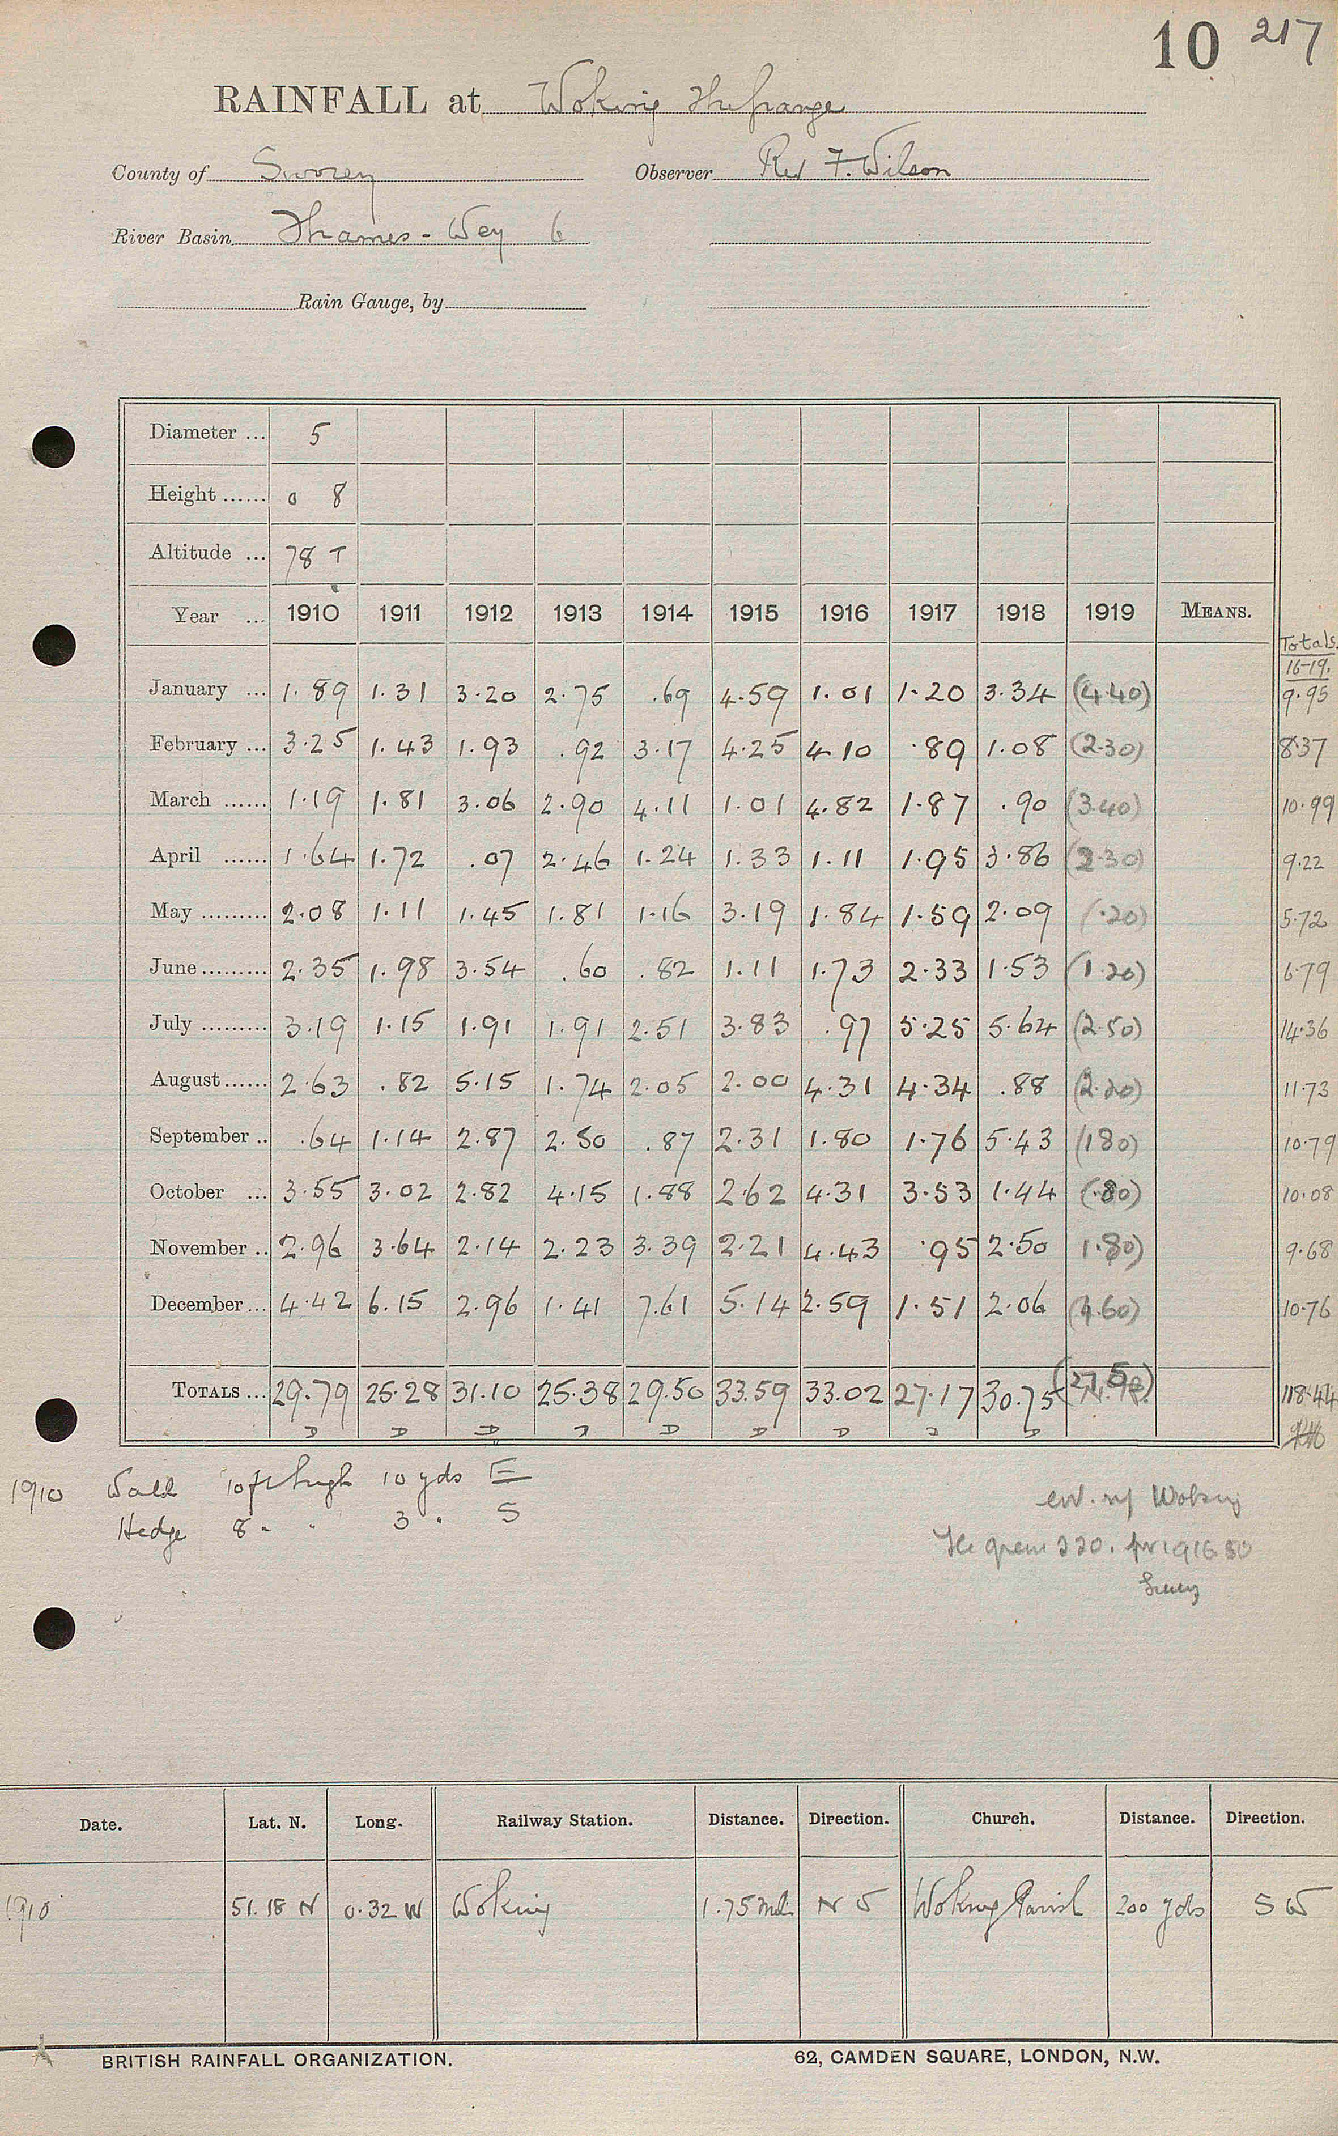 10 217
RAINFALL at Woking The Grange
County of Surrey Observer Rev F. Wilson
River Basin Thames - Wey 6
Rain Gauge, by
Diameter ... 5
Height ...... 0 8
Altitude ... 78 T
Year ... 1910 1911 1912 1913 1914 1915 1916 1917 1918 1919 MEANS. Totals 16-19.
January ... 1.89 1.31 3.20 2.75 .69 4.59 1.01 1.20 3.34 (4.40) 9.95
February ... 3.25 1.43 1.93 .92 3.17 4.25 4.10 .89 1.08 (2.30) 8.37
March ...... 1.19 1.81 3.06 2.90 4.11 1.01 4.82 1.87 .90 (3.40) 10.99
April ...... 1.64 1.72 .07 2.46 1.24 1.33 1.11 1.95 3.86 (2.30) 9.22
May ......... 2.08 1.11 1.45 1.81 1.16 3.19 1.84 1.59 2.09 (.20) 5.72
June ......... 2.35 1.98 3.54 .60 .82 1.11 1.73 2.33 1.53 (1.20) 6.79
July ......... 3.19 1.15 1.91 1.91 2.51 3.83 .97 5.25 5.64 (2.50) 14.36
August ...... 2.63 .82 5.15 1.74 2.05 2.00 4.31 4.34 .88 (2.20) 11.73
September .. .64 1.14 2.87 2.50 .87 2.31 1.80 1.76 5.43 (1.80) 10.79
October ... 3.55 3.02 2.82 4.15 1.88 2.62 4.31 3.53 1.44 (.80) 10.08
November .. 2.96 3.64 2.14 2.23 3.39 2.21 4.43 .95 2.50 1.80) 9.68
December ... 4.42 6.15 2.96 1.41 7.61 5.14 2.59 1.51 2.06 (4.60) 10.76
TOTALS ... 29.79 25.28 31.10 25.38 29.50 33.59 33.02 27.17 30.75 (27.5) 118.44
D D D D D D D D D
1910 Wall 10ft high 10 yds E
Hedge 8 " " 3 " S
Woking
220. for 1916 80
Date. Lat. N. Long. Railway Station. Distance. Direction. Church. Distance. Direction.
1910 51.18 N 0.32 W Woking 1.75 mls N W Woking Parish 200 yds S W
BRITISH RAINFALL ORGANIZATION. 62, CAMDEN SQUARE, LONDON, N.W.